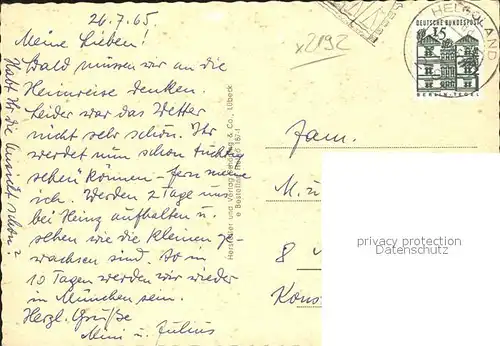 26.7.65
Meine Lieben!
Bald müssen wir an die
Heimreise denken.
Leider war das Wetter
nicht sehr schön. Ihr
werdet nun schon tüchtig
sehen können – fern meine
ich. Werden 2 Tage uns
bei Heinz aufhalten u.
sehen wie die Kleinen ge-
wachsen sind. So in
10 Tagen werden wir wieder
in München sein.
Herzl. Grüße
Mimi u. Julius
Habt Ihr die Ansicht schon?
x2192
HELGOLAND
DEUTSCHE BUNDESPOST
15
BERLIN-TEGEL
Fam.
M. u
8
Kons
privacy protection
Datenschutz
Hersteller und Verlag Schöning & Co., Lübeck